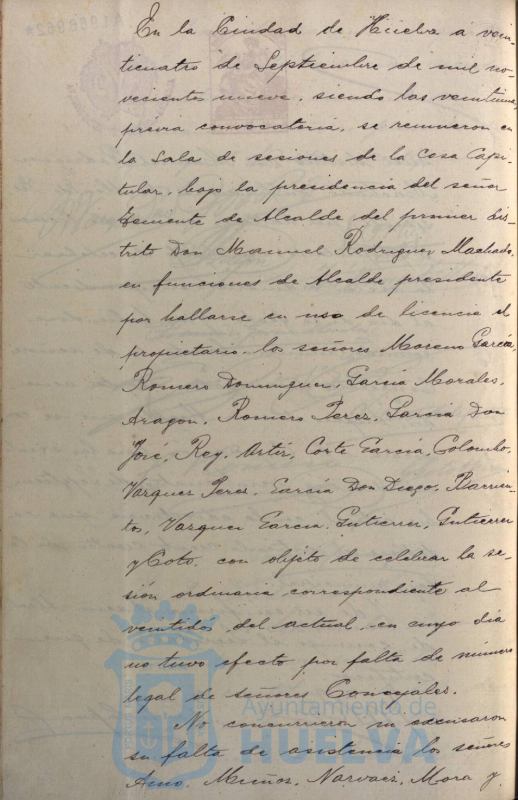 En la Ciudad de Huelva a vein-
ticuatro de Septiembre de mil no-
vecientos nueve, siendo las veintiuna,
previa convocatoria, se reunieron en
la Sala de sesiones de la Casa Capi-
tular, bajo la presidencia del señor
Teniente de Alcalde del primer dis-
trito Don Manuel Rodriguez Machado,
en funciones de Alcalde presidente
por hallarse en uso de licencia el
propietario, los señores Moreno García,
Romero Dominguez, García Morales,
Aragon, Romero Perez, Garcia Don
José, Rey, Ortiz, Corte García, Colombo,
Vazquez Perez, García Don Diego, Barrien-
tos, Vazquez Garcia, Gutierrez, Gutierrez
y Coto, con objeto de celebrar la se-
sión ordinaria correspondiente al
veintidós del actual, en cuyo dia
no tuvo efecto por falta de número
legal de señores Concejales.
No concurrieron ni excusaron
su falta de asistencia los señores
Muñoz, Narvaez, Mora y
Ayuntamiento de
HUELVA